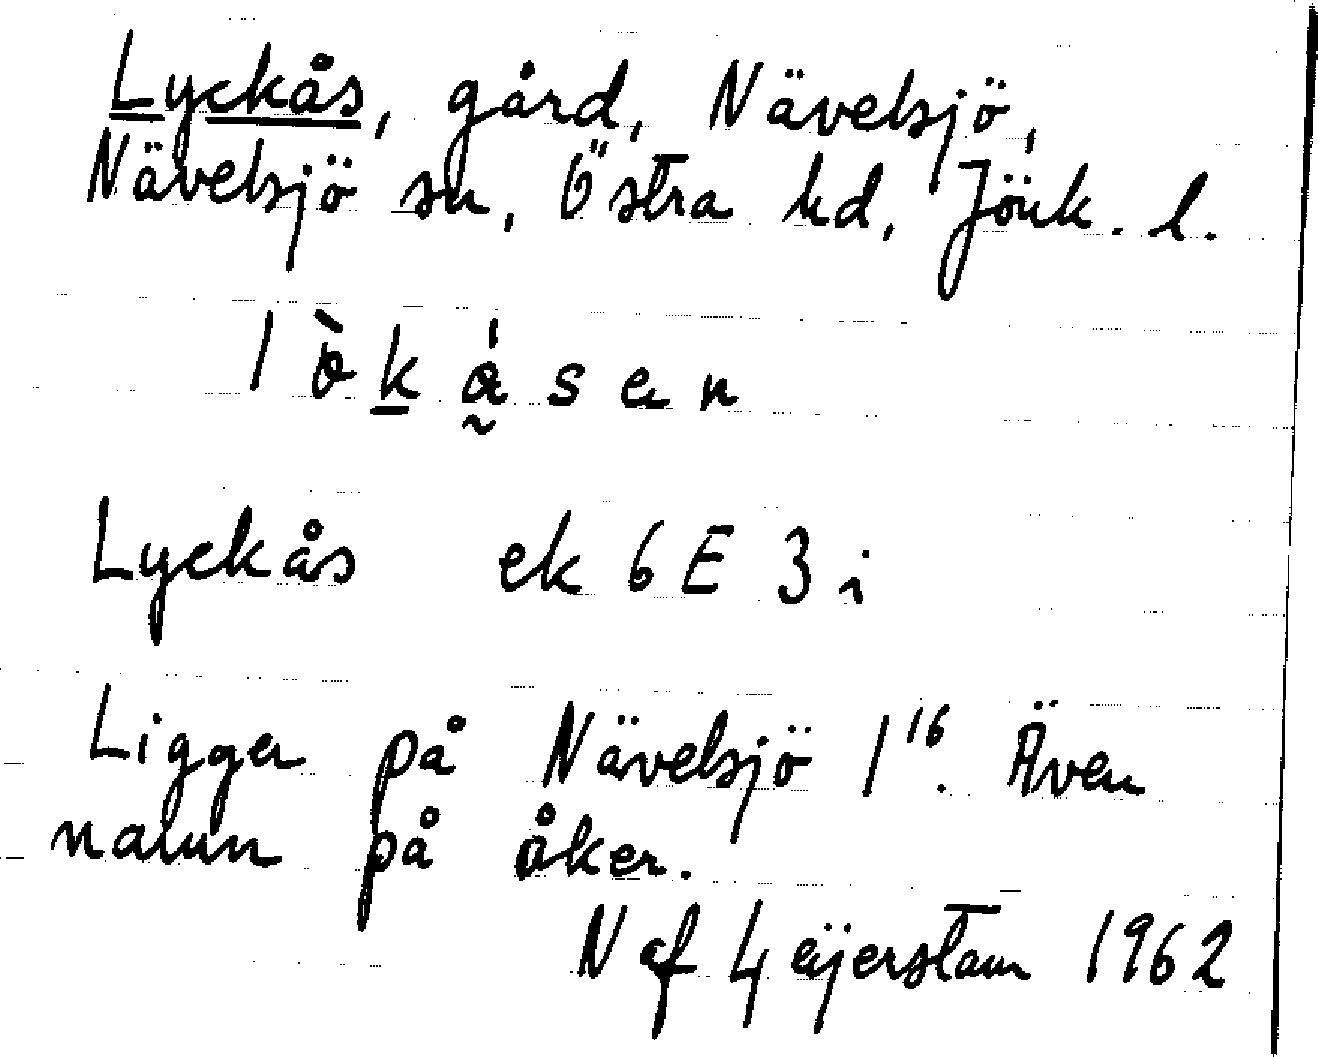 Lyckås, gård, Nävelsjö,
Nävelsjö sn, Östra hd, Jönk. l.
lò̀k ǻsen
Lyckås ek 6 E 3 i
Ligger på Nävelsjö 1¹⁶. Även
namn på åker.
N af Geijerstam 1962